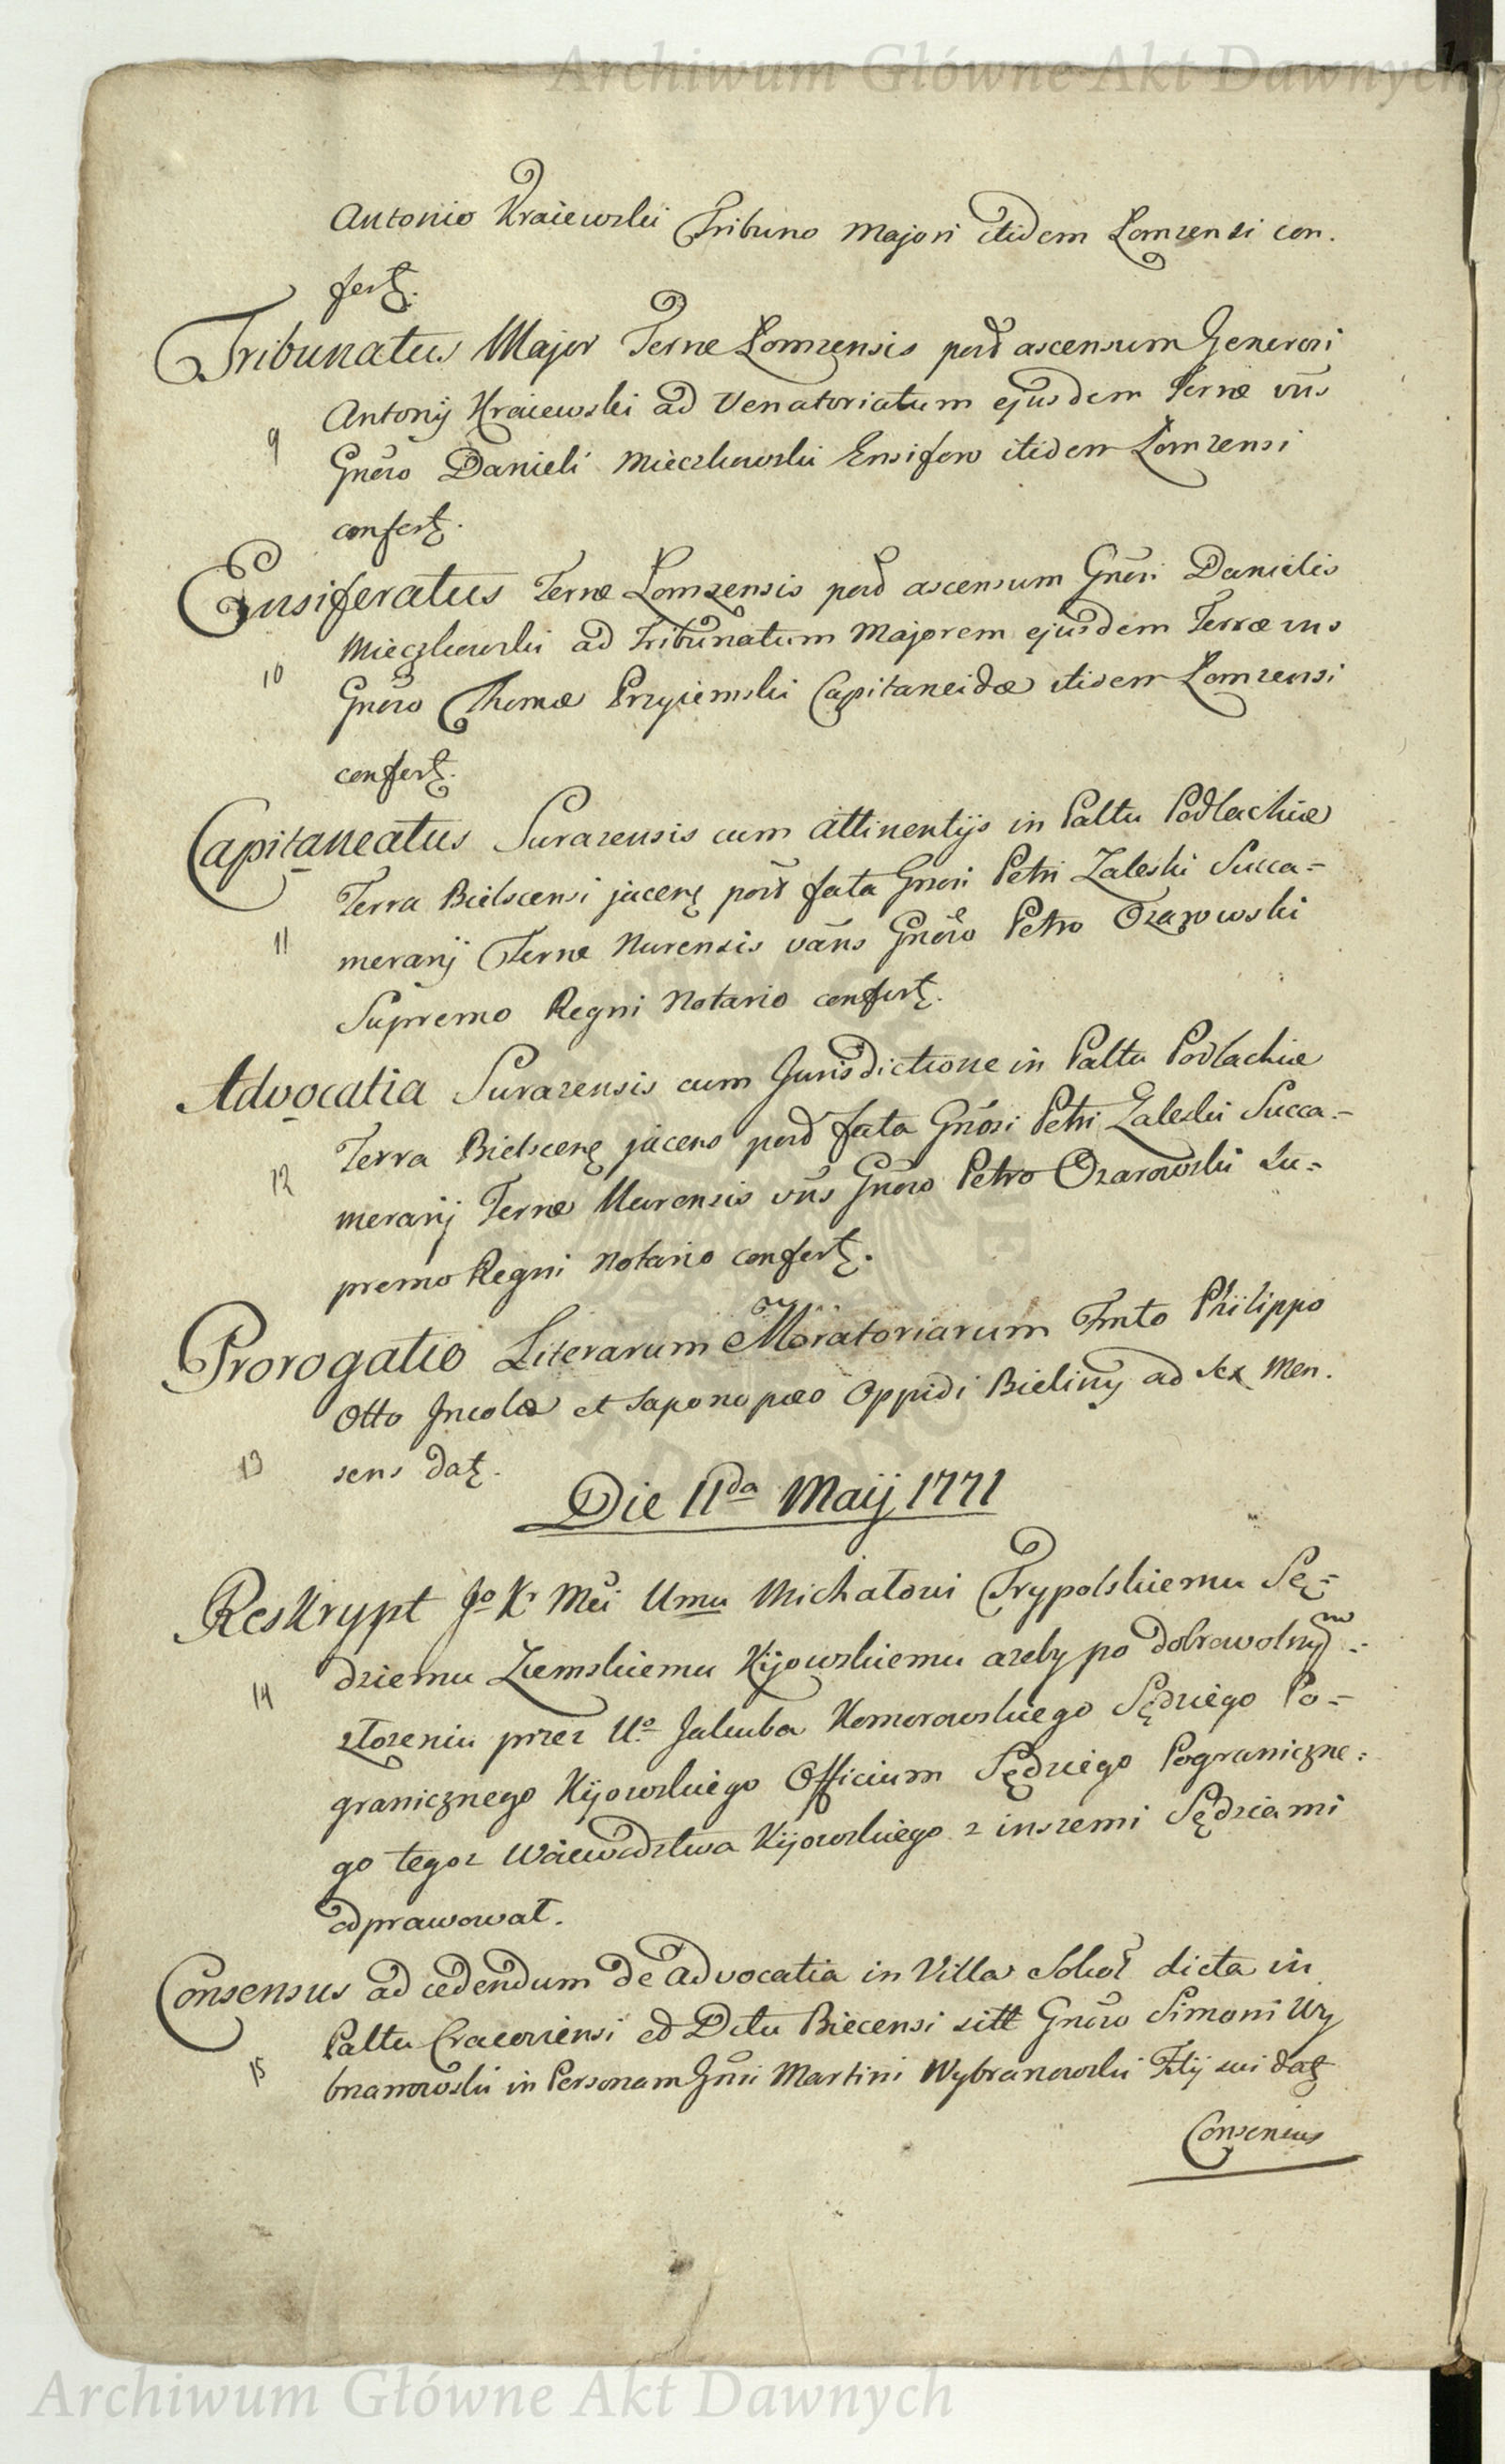 Archiwum Główne Akt Dawnych
Antonio Kraiewski Tribuno Majori itidem Łomzensi con.
fertę.
Tribunatus Major Terræ Łomzensis post ascensum Generosi
Antonij Kraiewski ad Venatoriatum ejusdem Terræ vṅs
9
Gnõso Danieli Mieczkowski Ensifero itidem Łomzensi
confertę.
Ensiferatus Terræ Łomzensis post ascensum Gnõsi Danielis
Mieczkowski ad Tribunatum Majorem ejusdem Terræ vns
10
Gnõso Thomæ Przyiemski Capitaneidæ itidem Łomzensi
confertę.
Capitaneatus Surazensis cum attinentijs in Pałtu Podlachiæ
Terra Bielscensi jacenę post fata Gnõsi Petri Zaleski Succa=
11
merarij Terræ Nurensis vãns Gnõso Petro Ozarowski
Supremo Regni Notario confertę.
Advocatia Surazensis cum Jurisdictione in Paltu Podlachiæ
Terra Bielscenę jacens post fata Gnõsi Petri Zaleski Succa=
12
merarij Terræ Nurensis vṅs Gnõso Petro Ozarowski Su=
premo Regni Notario confertę.
Prorogatio Literarum Moratoriarum Fmto Philippo
Otto Incolæ et Saponopæo Oppidi Bieliny ad sex Men.
13
sens datę.
Die 11da Maij 1771
Reskrypt Jo Kr Mci Umu Michałowi Trypolskiemu Sę=
dziemu Ziemskiemu Kijowskiemu azeby po dobrowolnym
14
złozeniu przez Uo Jakuba Komorowskiego Sędziego Po=
granicznego Kijowskiego Officium Sędziego Pograniczne=
go tegoz Woiewodztwa Kijowskiego z inszemi Sędziami
odprawował.
Consensus ad cedendum de Advocatia in Villa Sokoł dicta in
Paltu Cracoviensi et Dctu Biecensi sitt Gnõso Simoni Wy
15
branowski in Personam Gnsi Martini Wybranowski Filij sui datę
Consensus
Archiwum Główne Akt Dawnych